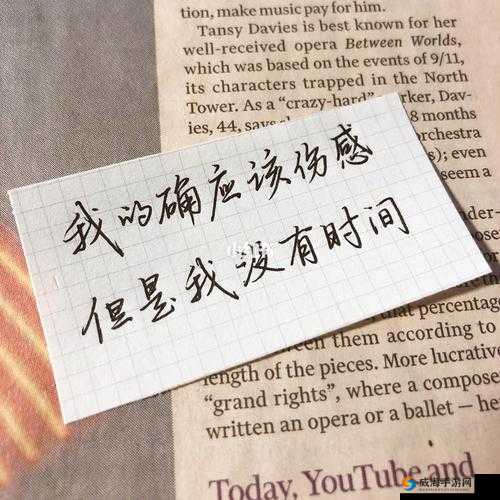 tion, make music pay for him.
Tansy Davies is best known for her
well-received opera Between Worlds,
which was based on the events of 9/11,
its characters trapped in the North
Tower. As a “crazy-hard”
ies, 44,
8 months
orchestra
s); even
seem a
我的确应该伤感
但是我没有时间
that percentage
them according to
length of the pieces. More lucrative
“grand rights”, where a composer
written an opera or a ballet — her
Today, YouTube and
威海手游网